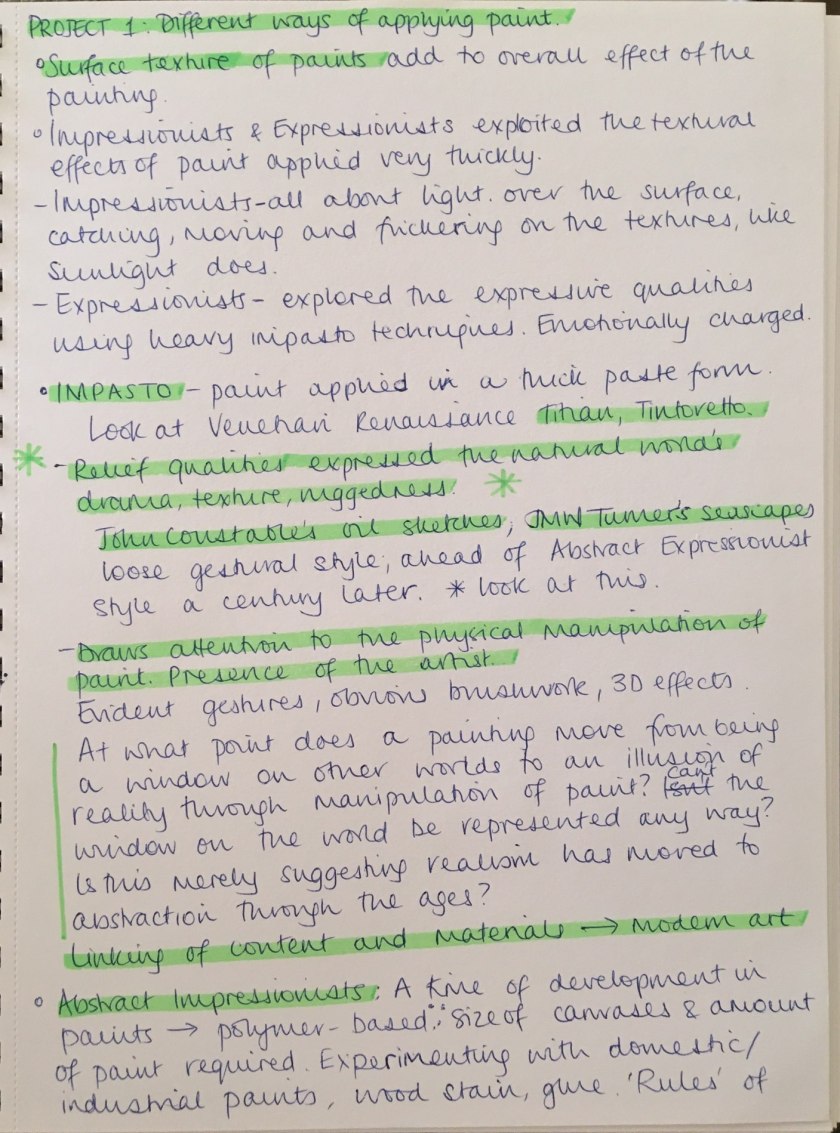 PROJECT 1: Different ways of applying paint.
° Surface texture of paints add to overall effect of the
painting.
° Impressionists & Expressionists exploited the textural
effects of paint applied very thickly.
- Impressionists - all about light. over the surface,
catching, moving and flickering on the textures, like
sunlight does.
- Expressionists - explored the expressive qualities
using heavy impasto techniques. Emotionally charged.
• IMPASTO - paint applied in a thick paste form.
Look at Venetian Renaissance Titian, Tintoretto.
* - Relief qualities expressed the natural world's
drama, texture, ruggedness. *
John Constable's oil sketches, JMW Turner's seascapes
loose gestural style, ahead of Abstract Expressionist
style a century later. * look at this.
- Draws attention to the physical manipulation of
paint. Presence of the artist.
Evident gestures, obvious brushwork, 3D effects.
At what point does a painting move from being
a window on other worlds to an illusion of
reality through manipulation of paint? Isn't Can't the
window on the world be represented any way?
Is this merely suggesting realism has moved to
abstraction through the ages?
Linking of content and materials → modern art
° Abstract Impressionists: A time of development in
paints → polymer-based ∵ size of canvases & amount
of paint required. Experimenting with domestic/
industrial paints, wood stain, glue. 'Rules' of